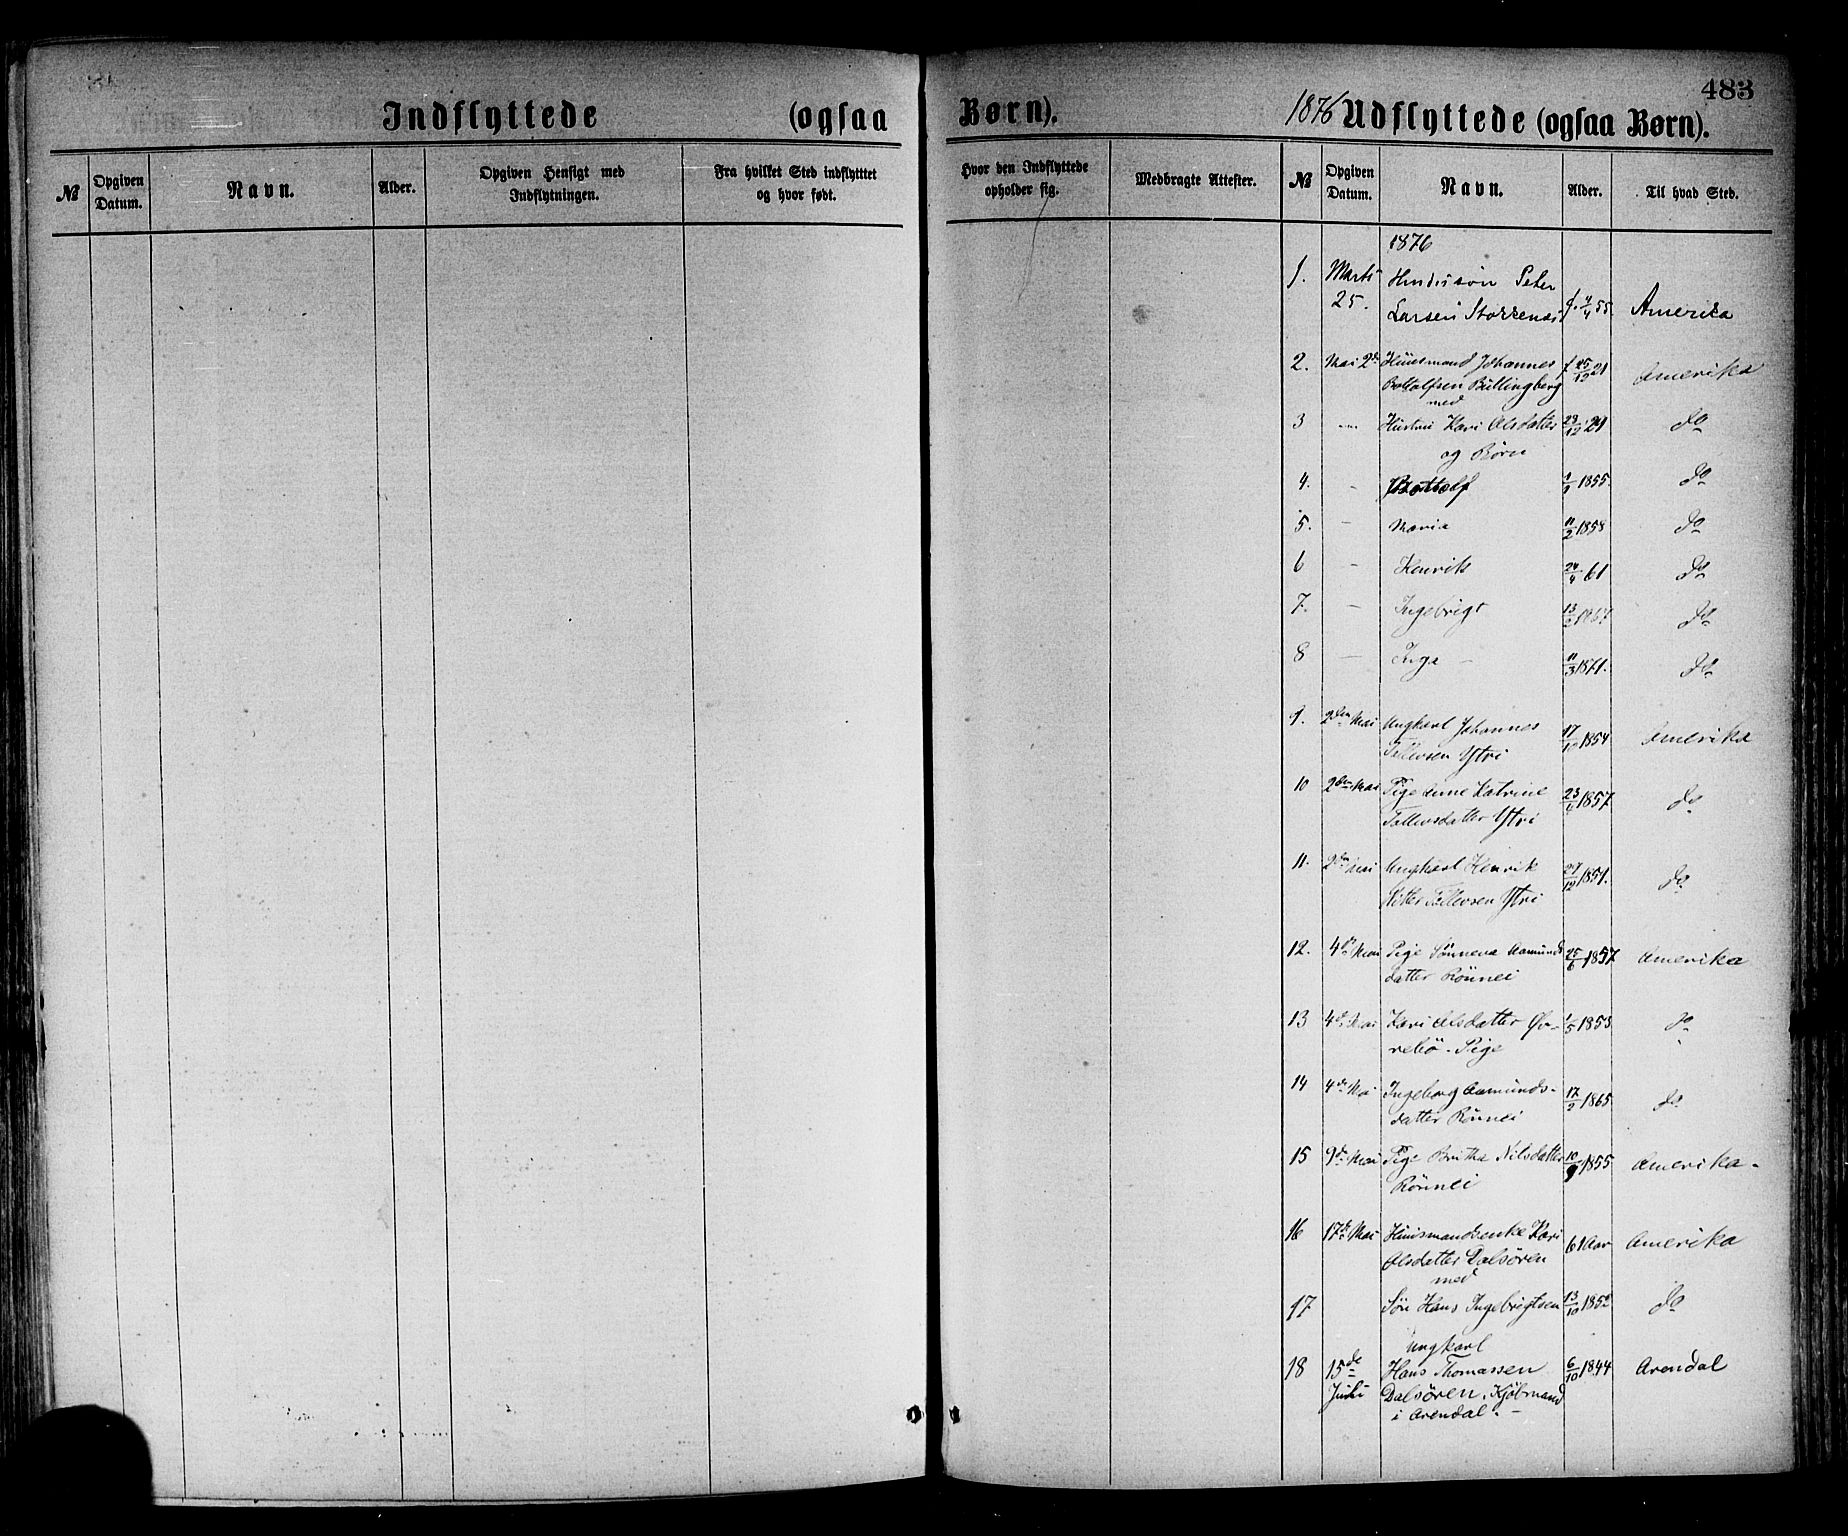 483
Indflyttede (ogsaa Børn).
1876 Udflyttede (ogsaa Børn).
№ Opgiven Datum. Navn. Alder. Opgiven Hensigt med Indflytningen. Fra hvilket Sted indflytttet og hvor født. Hvor den Indflyttede opholder sig. Medbragte Attester.
№ Opgiven Datum. Navn. Alder. Til hvad Sted.
1876
1. Marts Peter
25. Larsen f. 4/4 55. Amerika
2. Mai 2de Huusmand Johannes f 25/12 21 Amerika
Bottolfsen Bullingberg
med
3 Hustru Kari Olsdatter 23/12 29 do
og Børn
4. - Bottolf 1855. do
5. - Maria 11/2 1858 do
6 - Henrik 24/4 61 do
7. - Ingebrigt 13/2 1867 do
8 - Inga - 11/3 1871. do
9. 2den Mai Ungkarl Johannes 17/10 1854 Amerika
Tollevsen Ytri
10 2den Mai Pige Anne Katrine 23/6 1857 do
Tollevsdatter Ytri
11. 2den Mai Ungkarl Henrik 27/12 1851. do
Tollevsen Ytri
12. 4de Mai Pige Sønneva Aamunds 25/6 1857 Amerika
datter Rønnei
13 4de Mai Kari Olsdatter Øv- 1/5 1853 do
rebø. Pige
14 4de Mai Ingeborg Aamunds- 17/2 1865 do
datter Rønnei
15 9de Mai Pige Britha Nilsdatter 10/9 1855 Amerika.
Rønnei
16 17de Mai Huusmandsenke Kari 61 Aar Amerika
Olsdatter Dalsøren
med
17 Søn Hans Ingebrigtsen 13/10 1852 do
Ungkarl
18 15de Hans Thomassen 6/10 1844 Arendal
Juli Dalsøren. Kjøbmand
i Arendal. -